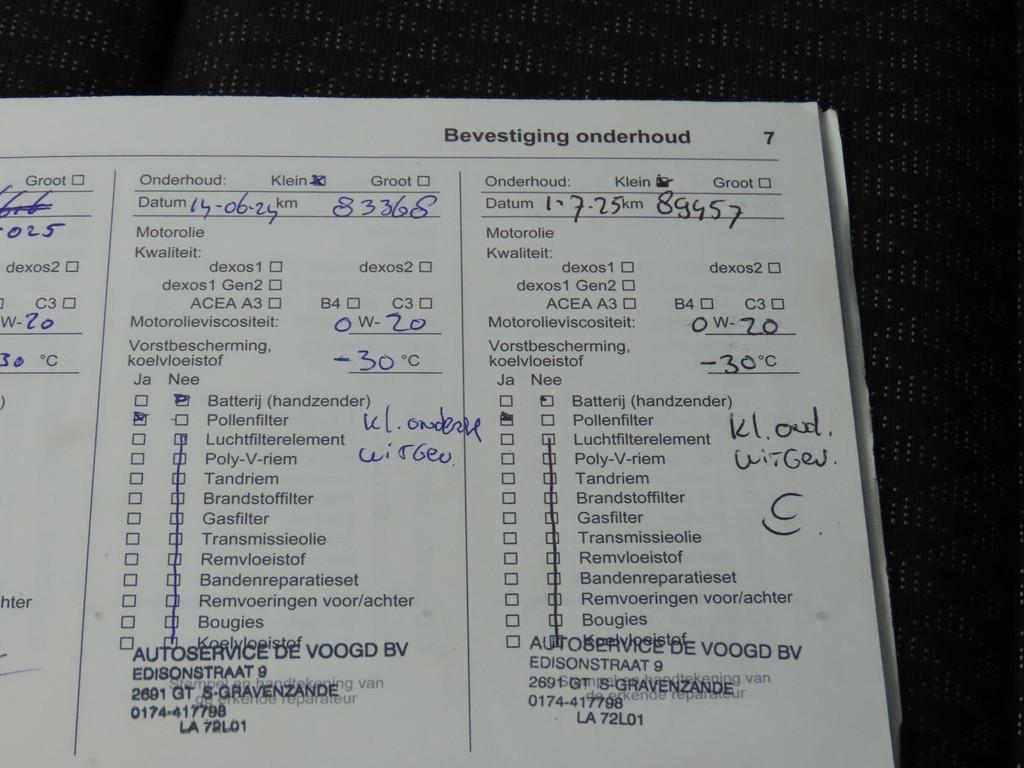 Bevestiging onderhoud 7
Groot
025
dexos2
C3
W-20
30 °C
)
hter
Onderhoud: Klein Groot
Datum 14-06-24 km 83368
Motorolie
Kwaliteit:
dexos1 dexos2
dexos1 Gen2
ACEA A3 B4 C3
Motorolieviscositeit: 0 W-20
Vorstbescherming,
koelvloeistof -30 °C
Ja Nee
Batterij (handzender)
Pollenfilter
Luchtfilterelement
Poly-V-riem
Tandriem
Brandstoffilter
Gasfilter
Transmissieolie
Remvloeistof
Bandenreparatieset
Remvoeringen voor/achter
Bougies
Koelvloeistof
Kl.
uitgev.
AUTOSERVICE DE VOOGD BV
EDISONSTRAAT 9
Stempel en handtekening van
2691 GT S-GRAVENZANDE
de erkende reparateur
0174-417798
LA 72L01
Onderhoud: Klein Groot
Datum 1-7-25 km 89457
Motorolie
Kwaliteit:
dexos1 dexos2
dexos1 Gen2
ACEA A3 B4 C3
Motorolieviscositeit: 0 W-20
Vorstbescherming,
koelvloeistof -30 °C
Ja Nee
Batterij (handzender)
Pollenfilter
Luchtfilterelement
Poly-V-riem
Tandriem
Brandstoffilter
Gasfilter
Transmissieolie
Remvloeistof
Bandenreparatieset
Remvoeringen voor/achter
Bougies
Koelvloeistof
Kl. ond.
uitgev.
AUTOSERVICE DE VOOGD BV
EDISONSTRAAT 9
Stempel en handtekening van
2691 GT S-GRAVENZANDE
de erkende reparateur
0174-417798
LA 72L01